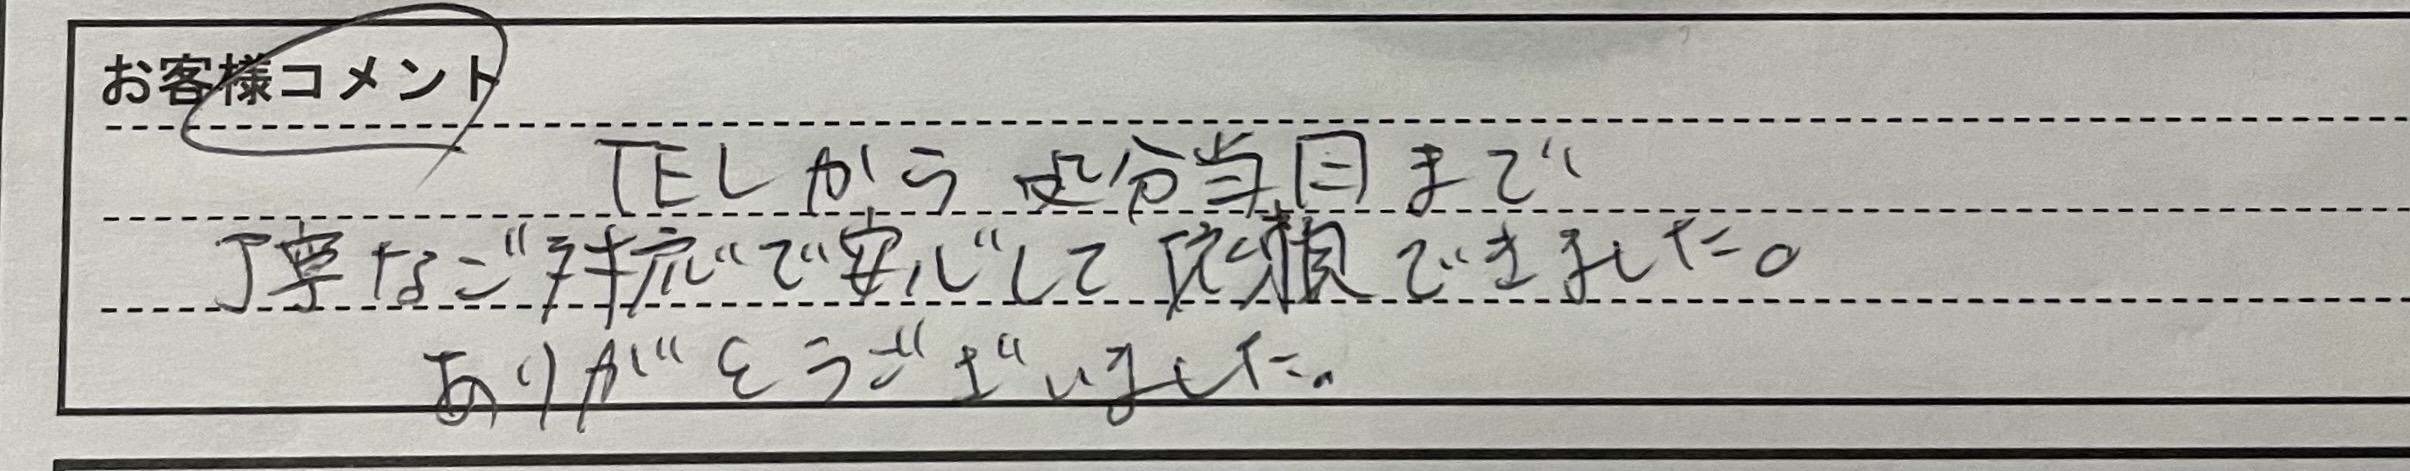 お客様コメント
TELから 処分当日まで
丁寧なご対応で安心して依頼できました。
ありがとうございました。